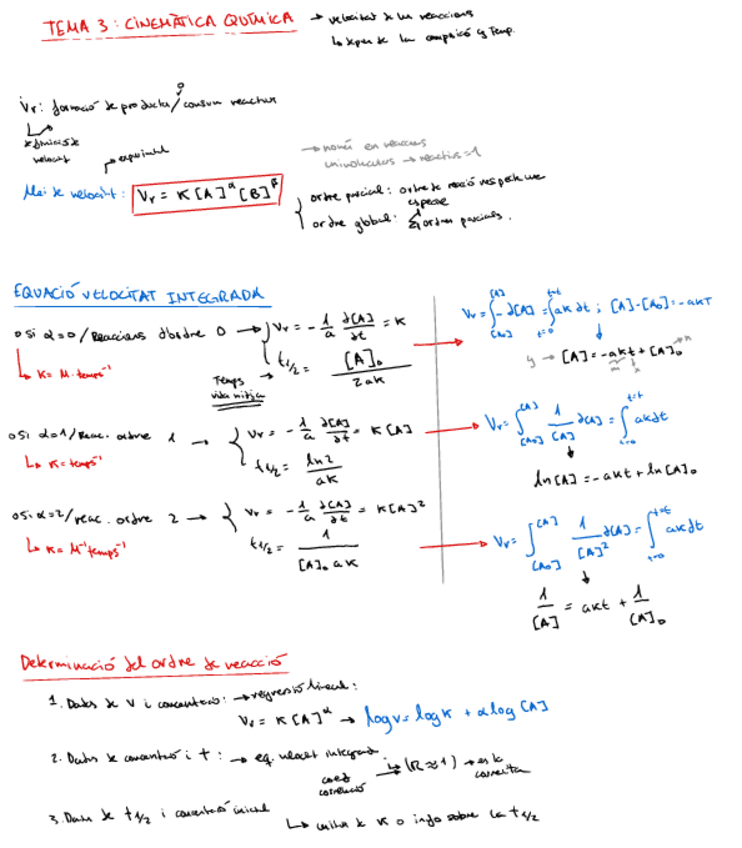 TEMA 3: CINEMÀTICA QUÍMICA → velocitat de les reaccions
↳ depen de la compsició y Temp.
Vr: formació de productes / consum reactius
o
velocitat
→ experimental
→ només en reaccions
unimoleculars → reactius=1
Llei de velocitat: Vr = K[A]^α [B]^β
ordre parcial: ordre de reacció respecte una
especie
ordre global: Σ ordres parcials.
EQUACIÓ VELOCITAT INTEGRADA
o si α=0/Reaccions d'ordre 0 → Vr = - 1/a ∂[A]/∂t = K
↳ K = M·temps⁻¹
Temps
vida mitja → t1/2 = [A]₀ / 2aK
Vr = ∫ - ∂[A] = ∫ aK ∂t ; [A]-[A₀] = -aKT
[A₀] [A] t=0 t=t
y → [A] = -akt + [A]₀ → n
m x
o Si α=1/Reac. ordre 1 → Vr = - 1/a ∂[A]/∂t = K[A]
↳ K = temps⁻¹
t1/2 = ln2 / aK
Vr = ∫ 1/[A] ∂[A] = ∫ akdt
[A₀] [A] t=0 t=t
ln[A] = -akt + ln[A]₀
o Si α=2/reac. ordre 2 → Vr = - 1/a ∂[A]/∂t = K[A]²
↳ K = M⁻¹temps⁻¹
t1/2 = 1 / [A]₀ aK
Vr = ∫ 1/[A]² ∂[A] = ∫ akdt
[A₀] [A] t=0 t=t
1/[A] = akt + 1/[A]₀
Determinació del ordre de reacció
1. Dades de V i concentració: → regresió lineal:
Vr = K[A]^α → logv = logK + αlog[A]
2. Dades de concentració i t : → eq. velocitat integrada
coef
correlació → (R≈1) → es la
correcta
3. Dades de t1/2 i concentració inicial
↳ unitats de K o info sobre la t1/2